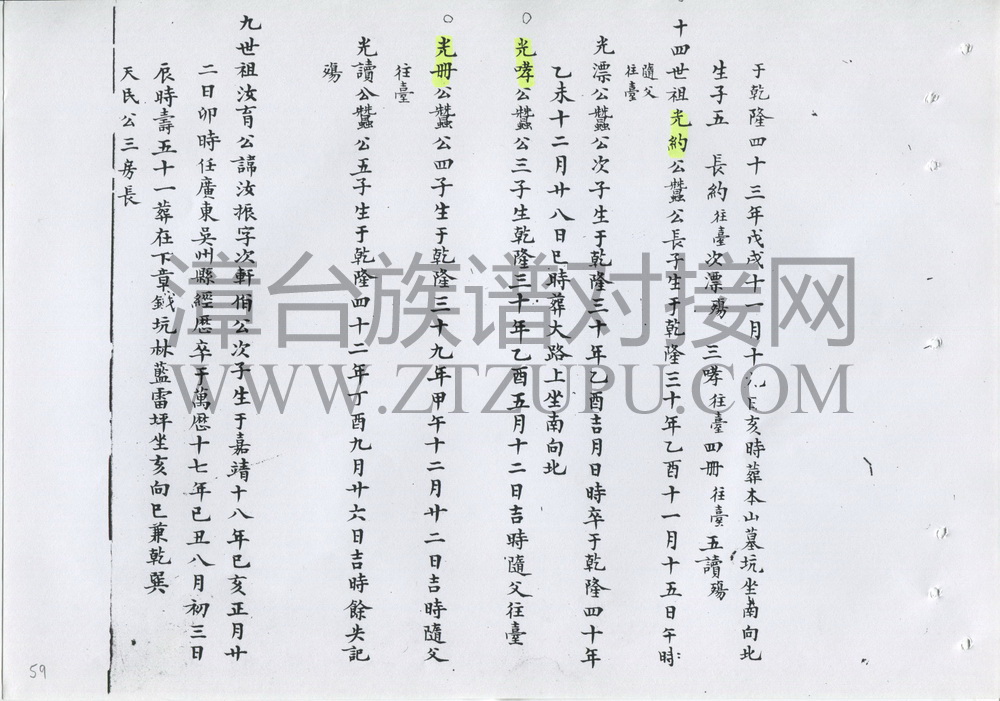 于乾隆四十三年戊戌十一月十九日亥時葬本山墓坑坐南向北
生子五　長約往臺次漂殤　三哮往臺四冊往臺五讀殤
十四世祖光約公蠶公長子生于乾隆三十年乙酉十一月十五日午時
隨父往臺
光漂公蠶公次子生于乾隆三十年乙酉吉月日時卒于乾隆四十年
乙未十二月廿八日巳時葬大路上坐南向北
光哮公蠶公三子生乾隆三十年乙酉五月十二日吉時隨父往臺
光冊公蠶公四子生于乾隆三十九年甲午十二月廿二日吉時隨父
往臺
光讀公蠶公五子生于乾隆四十二年丁酉九月廿六日吉時餘失記
殤
九世祖汝育公諱汝振字次軒公次子生于嘉靖十八年已亥正月廿
二日卯時任廣東吳州縣經歷卒于萬歷十七年已丑八月初三日
辰時壽五十一葬在下章坑林藍雷坪坐亥向巳兼乾巽
天民公三房長
59
漳台族谱对接网
WWW.ZTZUPU.COM